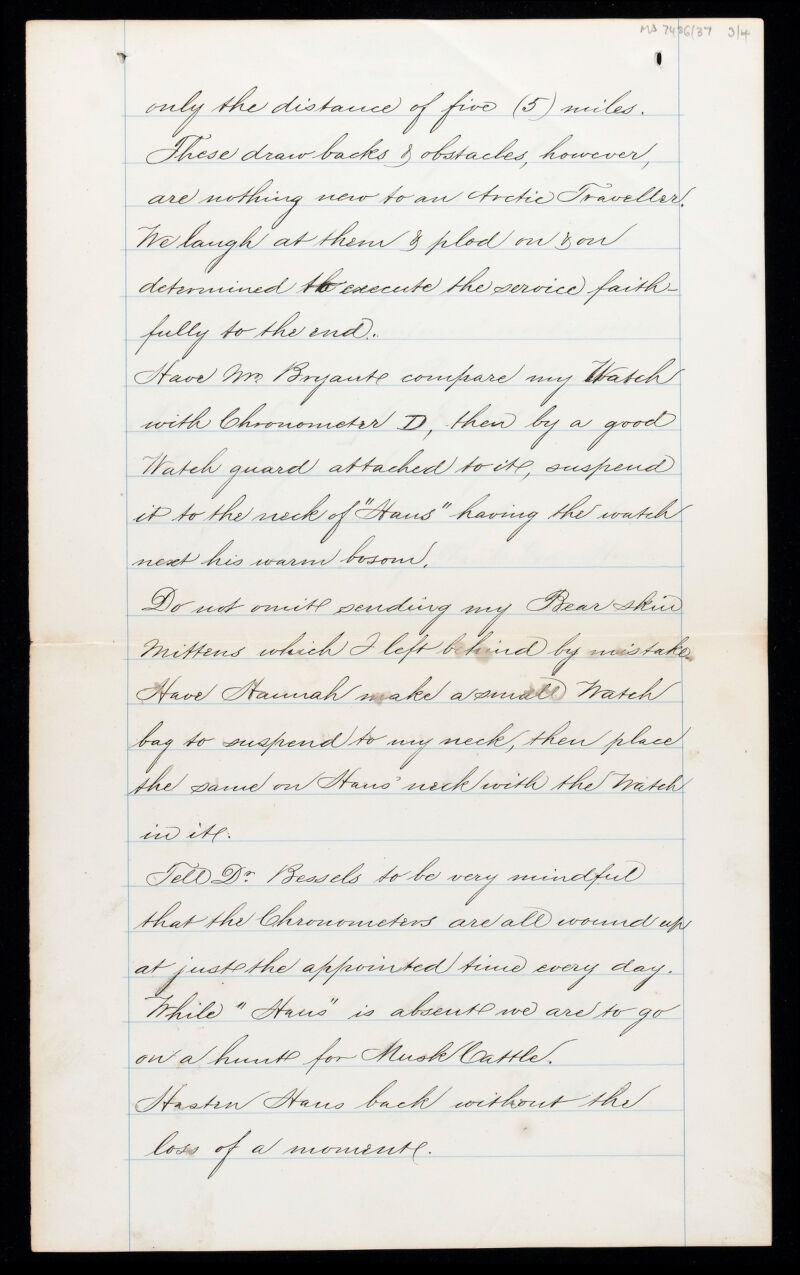 MS 7486/37 3/4
only the distance of five (5) miles.
These draw backs & obstacles, however,
are nothing new to an Arctic Traveller.
We laugh at them & plod on & on
determined to execute the service faith-
fully to the end.
Have Mr. Bryant compare my Watch
with Chronometer D, then by a good
Watch guard attached to it, suspend
it to the neck of "Hans" having the watch
next his warm bosom.
Do not omit sending my Bear skin
Mittens which I left behind by mistake.
Have Hannah make a small Watch
bag to suspend to my neck, then place
the same on Hans' neck with the Watch
in it.
Tell Dr. Bessels to be very mindful
that the Chronometers are all wound up
at just the appointed time every day.
While "Hans" is absent we are to go
on a hunt for Musk Cattle.
Hasten Hans back without the
loss of a moment.